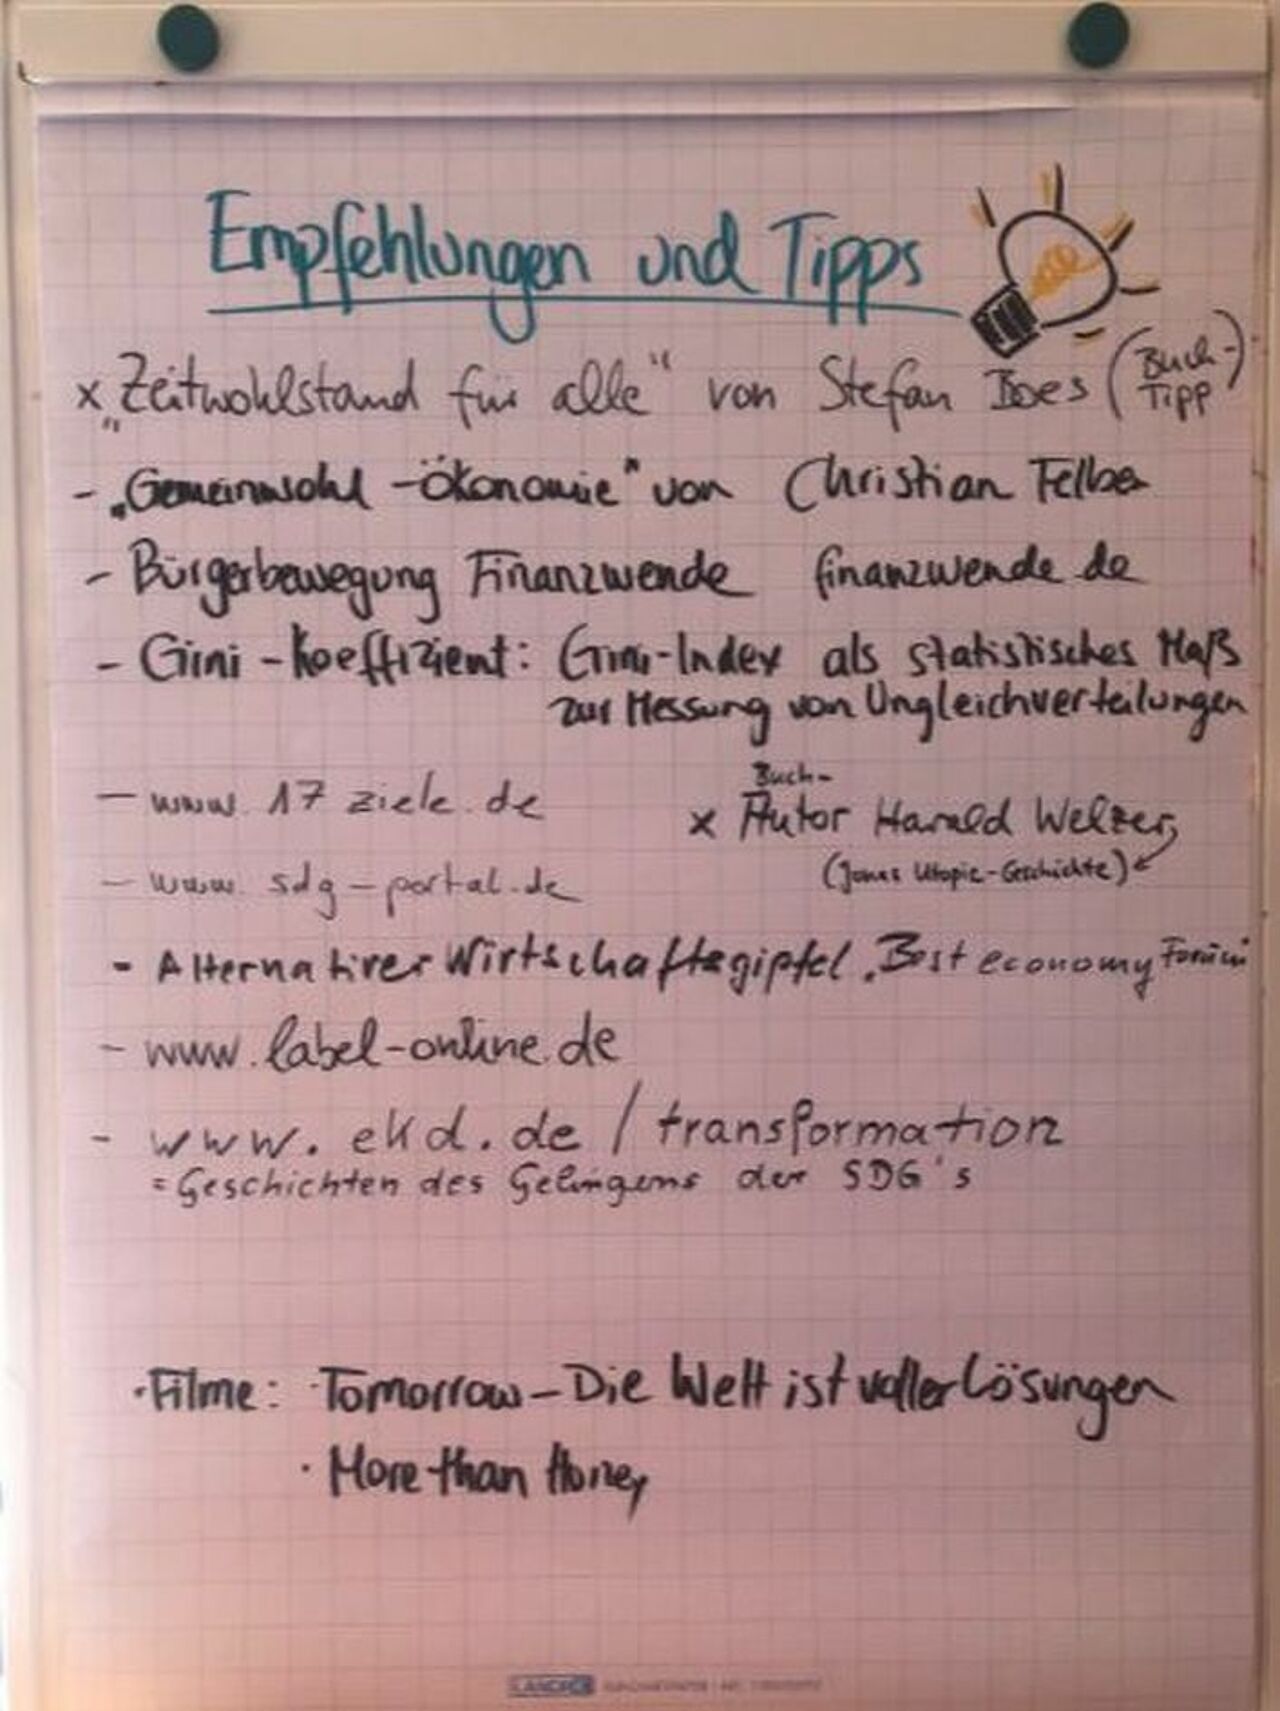 Empfehlungen und Tipps
x „Zeitwohlstand für alle“ von Stefan Boes (Buch-Tipp)
- „Gemeinwohl-Ökonomie“ von Christian Felber
- Bürgerbewegung Finanzwende finanzwende.de
- Gini-Koeffizient: Gini-Index als statistisches Maß
zur Messung von Ungleichverteilungen
- www.17ziele.de
x Buch-Autor Harald Welzer
(Jonas Utopie-Geschichte)
- www.sdg-portal.de
- Alternativer Wirtschaftsgipfel, Best economy Forum
- www.label-online.de
- www.ekd.de/transformation
= Geschichten des Gelingens der SDG's
· Filme: · Tomorrow – Die Welt ist voller Lösungen
· More than Honey